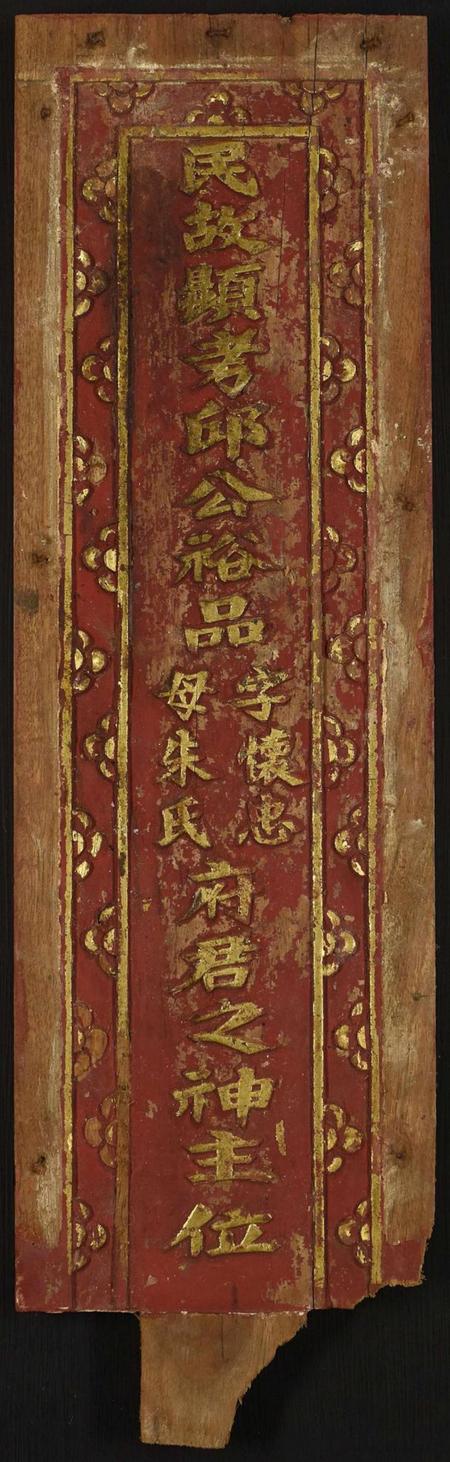 民故顯考邱公裕品
字懷忠
母朱氏
府君之神主位